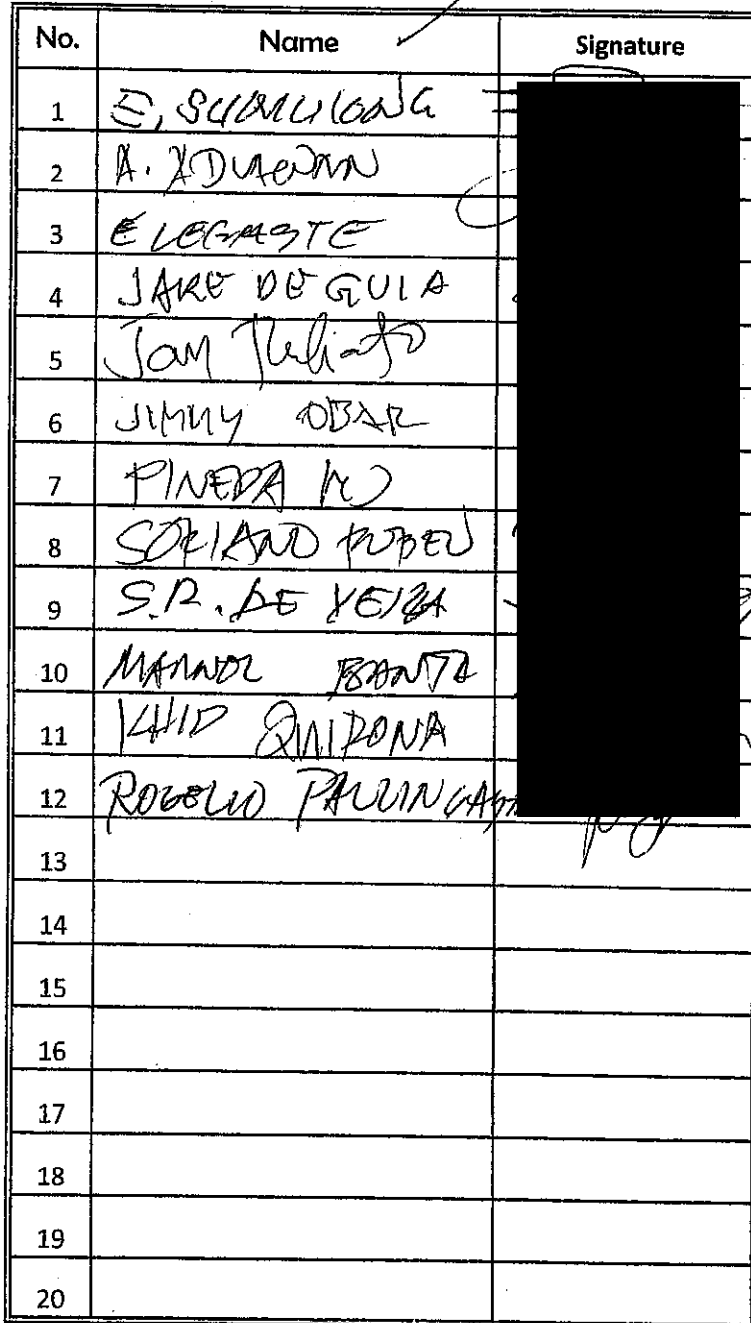 No. Name Signature
1 E. SUMULONG
2 A.
3 E LEGASTE
4 JAKE DE GUIA
5 Jom
6 JIMMY OBAR
7 PINEDA
8 SORIANO RUBEN
9 S.R. DE VEIRA
10 MANNOL
11 KHID QUIRONA
12 ROGELIO
13
14
15
16
17
18
19
20